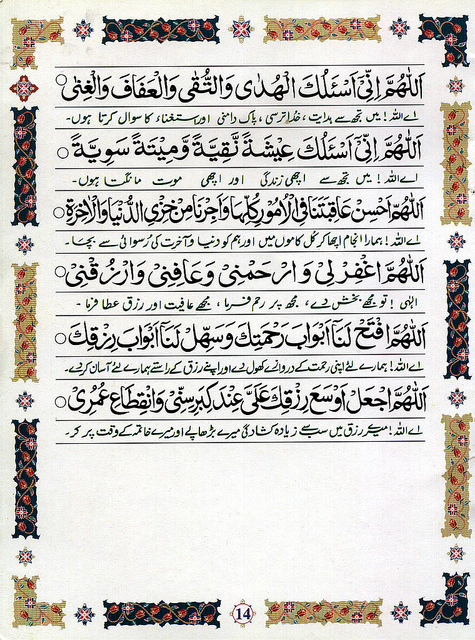 اَللّٰهُمَّ اِنِّيْ اَسْئَلُكَ الْهُدٰى وَالتُّقٰى وَالْعَفَافَ وَالْغِنٰى ○
اے اللہ! میں تجھ سے ہدایت، خدا ترسی، پاک دامنی اور استغناء کا سوال کرتا ہوں۔
اَللّٰهُمَّ اِنِّيْ اَسْئَلُكَ عِيْشَةً نَّقِيَّةً وَّمِيْتَةً سَوِيَّةً ○
اے اللہ! میں تجھ سے اچھی زندگی اور اچھی موت مانگتا ہوں۔
اَللّٰهُمَّ اَحْسِنْ عَاقِبَتَنَا فِي الْاُمُوْرِ كُلِّهَا وَاَجِرْنَا مِنْ خِزْيِ الدُّنْيَا وَالْاٰخِرَةِ ○
اے اللہ! ہمارا انجام اچھا کر کل کاموں میں اور ہم کو دنیا و آخرت کی رسوائی سے بچا۔
اَللّٰهُمَّ اغْفِرْ لِيْ وَارْحَمْنِيْ وَعَافِنِيْ وَارْزُقْنِيْ ○
الٰہی! تو مجھے بخش دے، مجھ پر رحم فرما، مجھے عافیت اور رزق عطا فرما۔
اَللّٰهُمَّ افْتَحْ لَنَا اَبْوَابَ رَحْمَتِكَ وَسَهِّلْ لَنَا اَبْوَابَ رِزْقِكَ ○
اے اللہ! ہمارے لئے اپنی رحمت کے دروازے کھول دے اور اپنے رزق کے راستے ہمارے لئے آسان کر دے۔
اَللّٰهُمَّ اجْعَلْ اَوْسَعَ رِزْقِكَ عَلَيَّ عِنْدَ كِبَرِ سِنِّيْ وَانْقِطَاعِ عُمُرِيْ ○
اے اللہ! میرے رزق میں سب سے زیادہ کشادگی میرے بڑھاپے اور میرے خاتمہ کے وقت پر کر۔
14